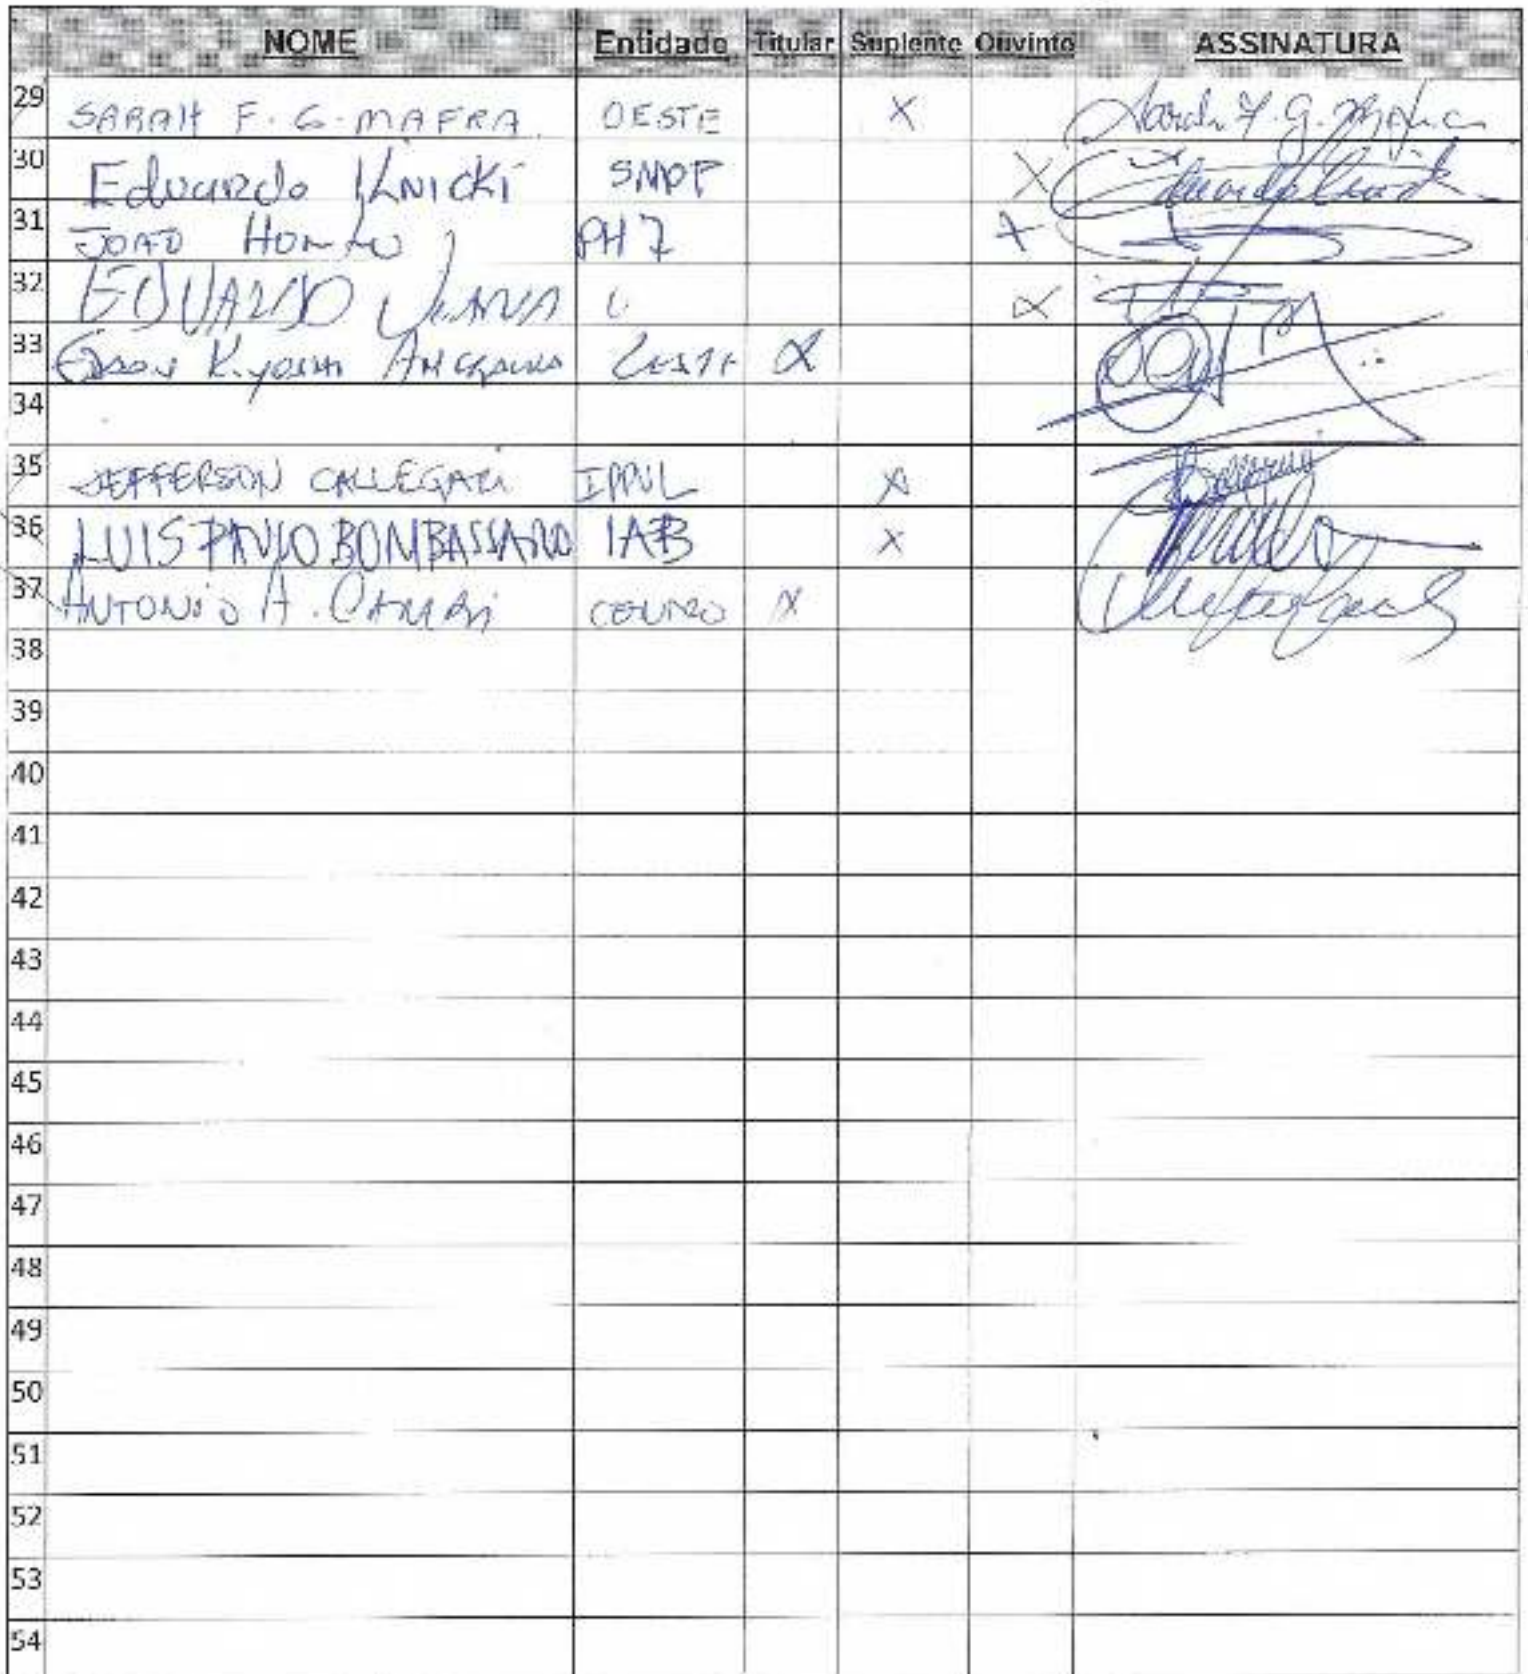 NOME Entidade Titular Suplente Ouvinte ASSINATURA
29 SARAH F. G. MAFRA OESTE X Sarah F. G. Mafra
30 Eduardo KNICKI SMOP X
31 JOÃO PH7 X
32 EDUARDO X
33 Edson Kiyoshi LESTE X
34
35 JEFFERSON CALLEGARI IPPUL X
36 LUIS PAULO BOMBASSARO IAB X
37 ANTONIO A. CENTRO X
38
39
40
41
42
43
44
45
46
47
48
49
50
51
52
53
54